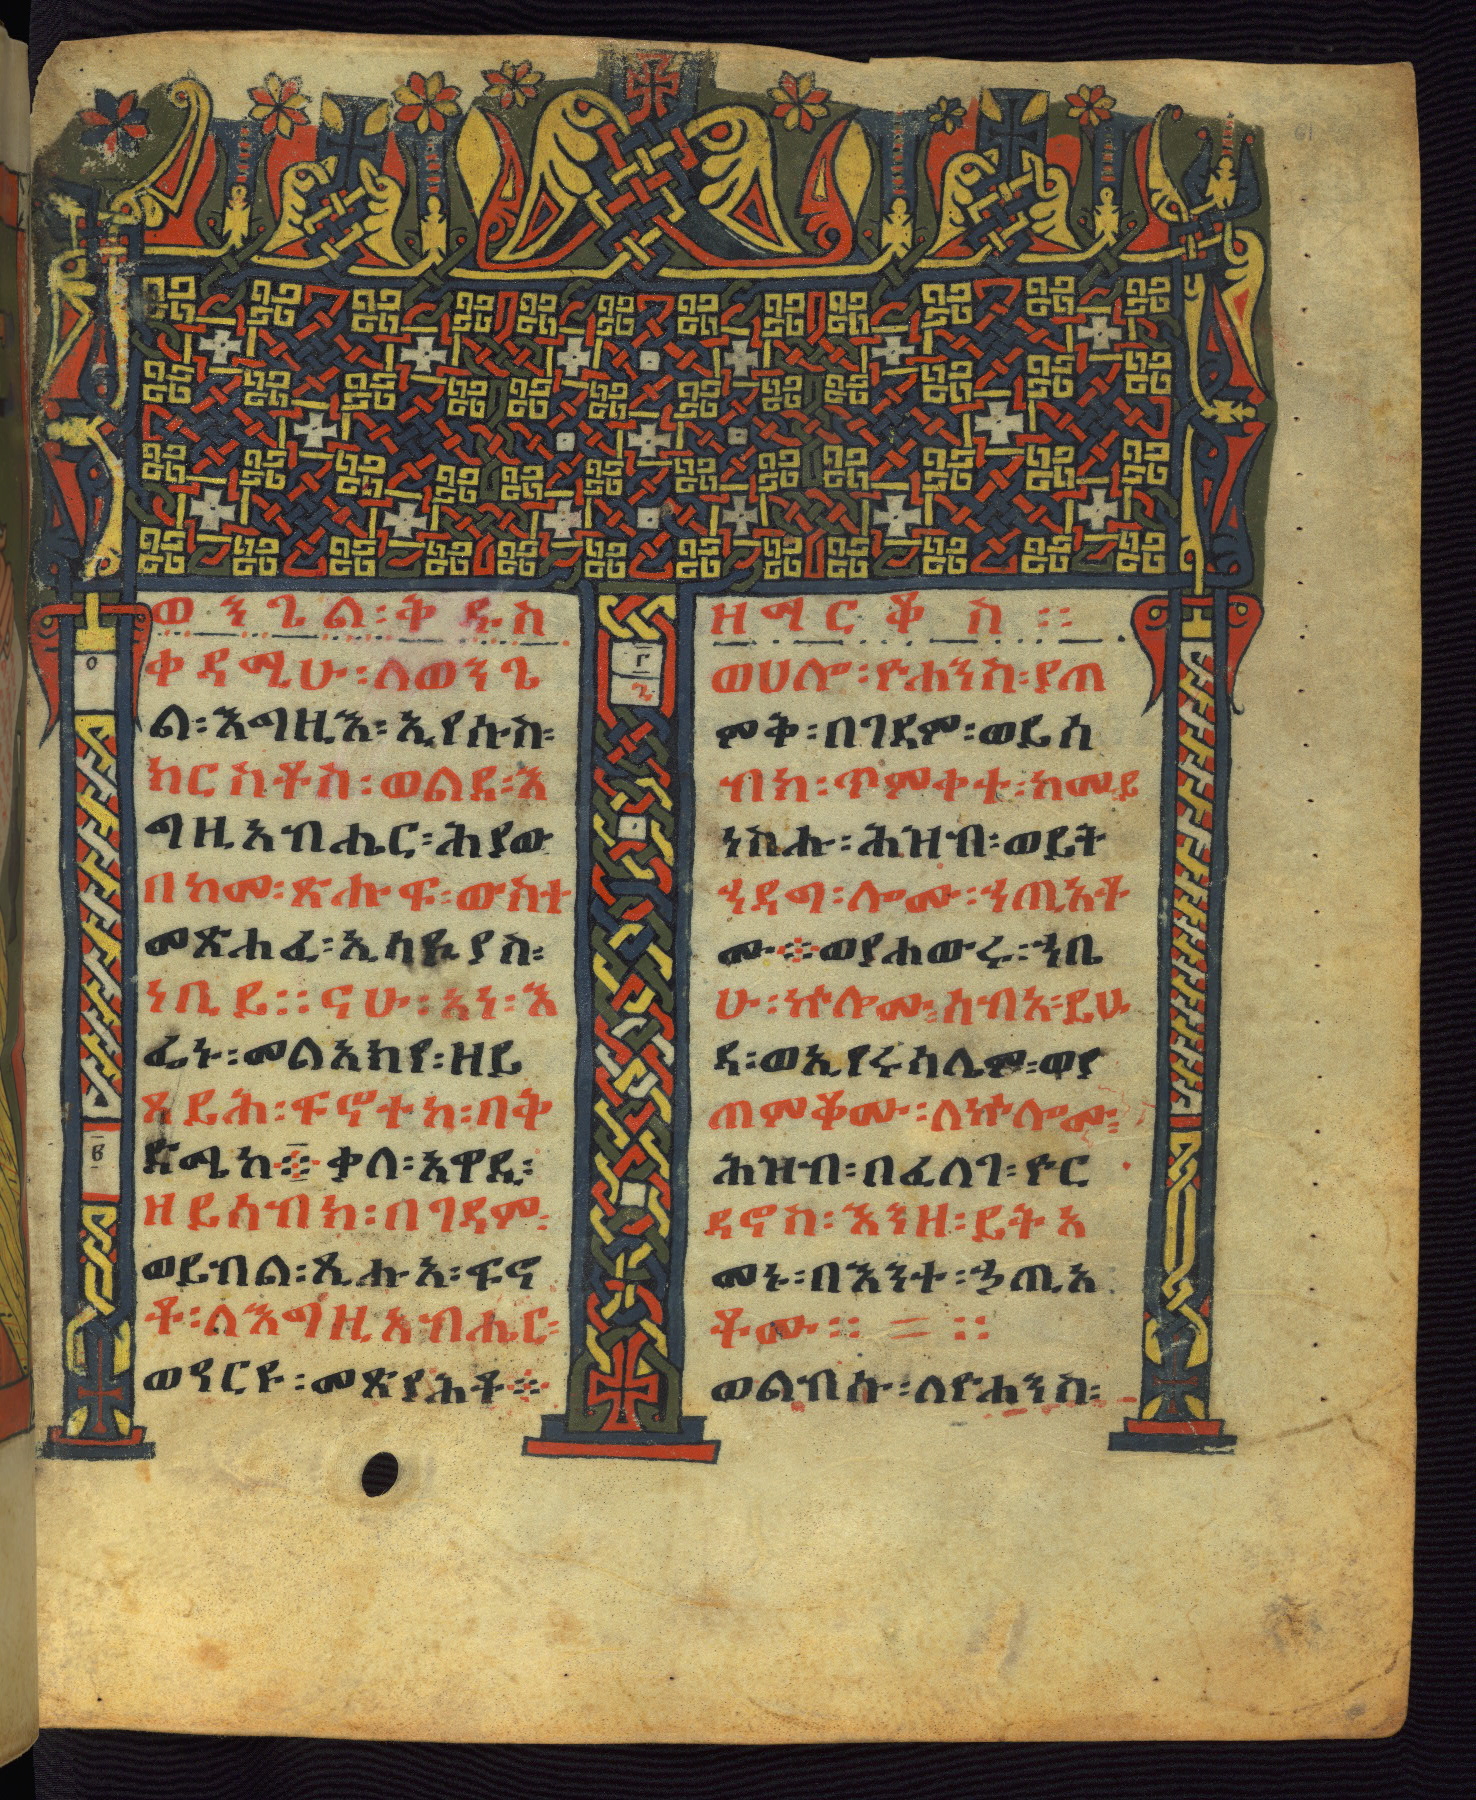 ወንጌል፡ቅዱስ
ቀዳሚሁ፡ለወንጌ
ል፡እግዚእ፡ኢየሱስ፡
ክርስቶስ፡ወልደ፡እ
ግዚአብሔር፡ሕያው
በከመ፡ጽሑፍ፡ውስተ
መጽሐፈ፡ኢሳይያስ፡
ነቢይ፡፡ናሁ፡አነ፡እ
ፌኑ፡መልአክየ፡ዘይ
ጸይሕ፡ፍኖተከ፡በቅ
ድሜከ፨ቃለ፡አዋዲ፡
ዘይሰብክ፡በገዳም፡
ወይብል፡ጺሑአ፡ፍኖ
ቶ፡ለእግዚአብሔር፡
ወዓርዩ፡መጽያሕቶ፨
ዘማርቆስ፡፡
ወሀሎ፡ዮሐንስ፡ያጠ
ምቅ፡በገዳም፡ወይሰ
ብክ፡ጥምቀተ፡ከመይ
ነስሑ፡ሕዝብ፡ወይት
ኃደግ፡ሎሙ፡ኃጢአቶ
ሙ፨ወየሐውሩ፡ኀቤ
ሁ፡ኵሎሙ፡ሰብአ፡ይሁ
ዳ፡ወኢየሩሳሌም፡ወያ
ጠምቆሙ፡ለኵሎሙ፡
ሕዝብ፡በፈለገ፡ዮር
ዳኖስ፡እንዘ፡ይትአ
መኑ፡በእንተ፡ኃጢአ
ቶሙ፡፡ = ፡፡
ወልብሱ፡ለዮሐንስ፡